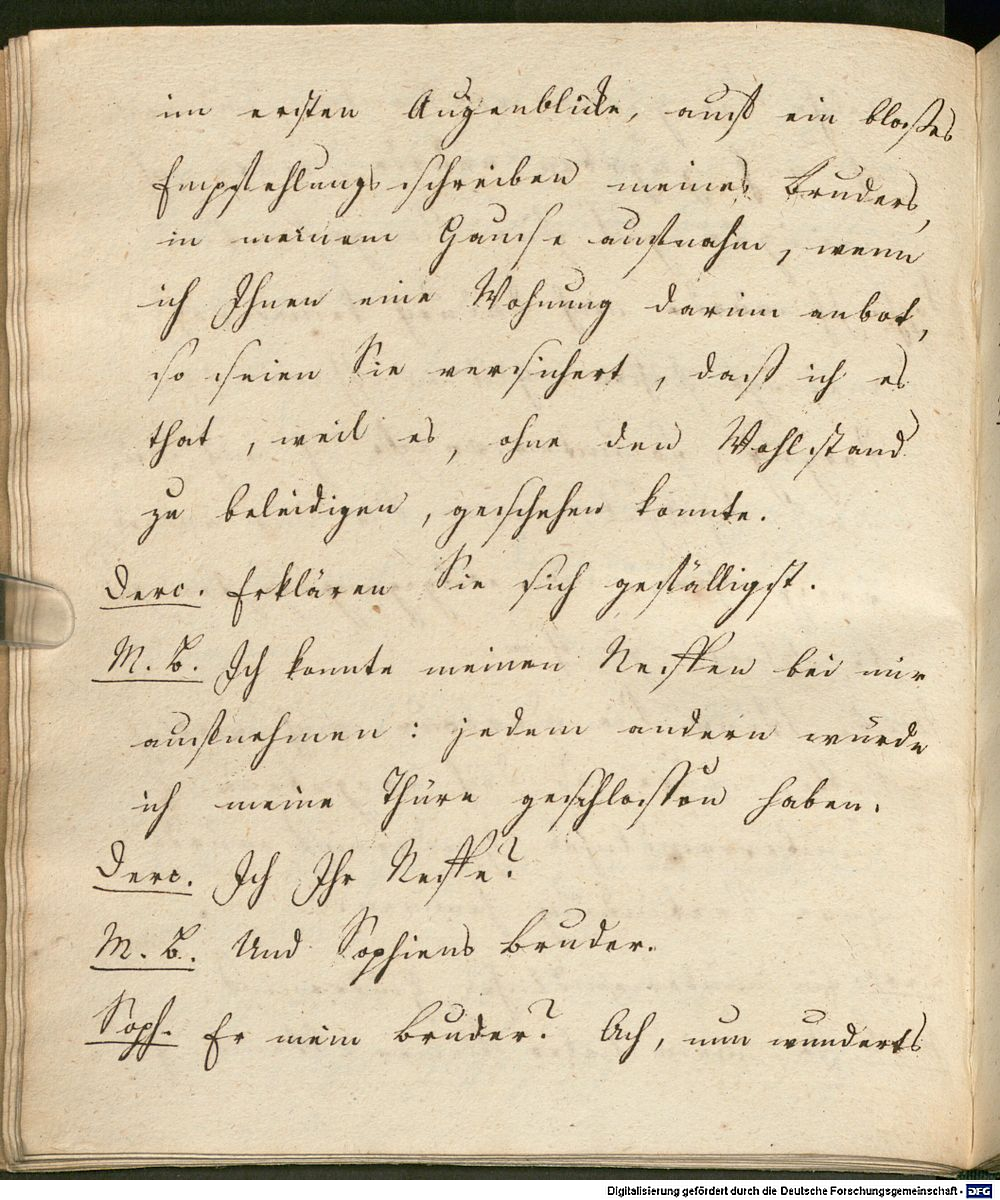 im ersten Augenblicke, auf ein bloßes
Empfehlungsschreiben meines Bruders,
in meinem Hause aufnahm, wenn
ich Ihnen eine Wohnung darinn anbot,
so seien Sie versichert, daß ich es
that, weil es, ohne den Wohlstand
zu beleidigen, geschehen konnte.
Derc. Erklären Sie sich gefälligst.
M. B. Ich konnte meinen Neffen bei mir
aufnehmen: jedem andern würde
ich meine Thüre geschlossen haben.
Derc. Ich Ihr Neffe?
M. B. Und Sophiens Bruder.
Soph. Er mein Bruder? Ach, nun wunderts
Digitalisierung gefördert durch die Deutsche Forschungsgemeinschaft - DFG